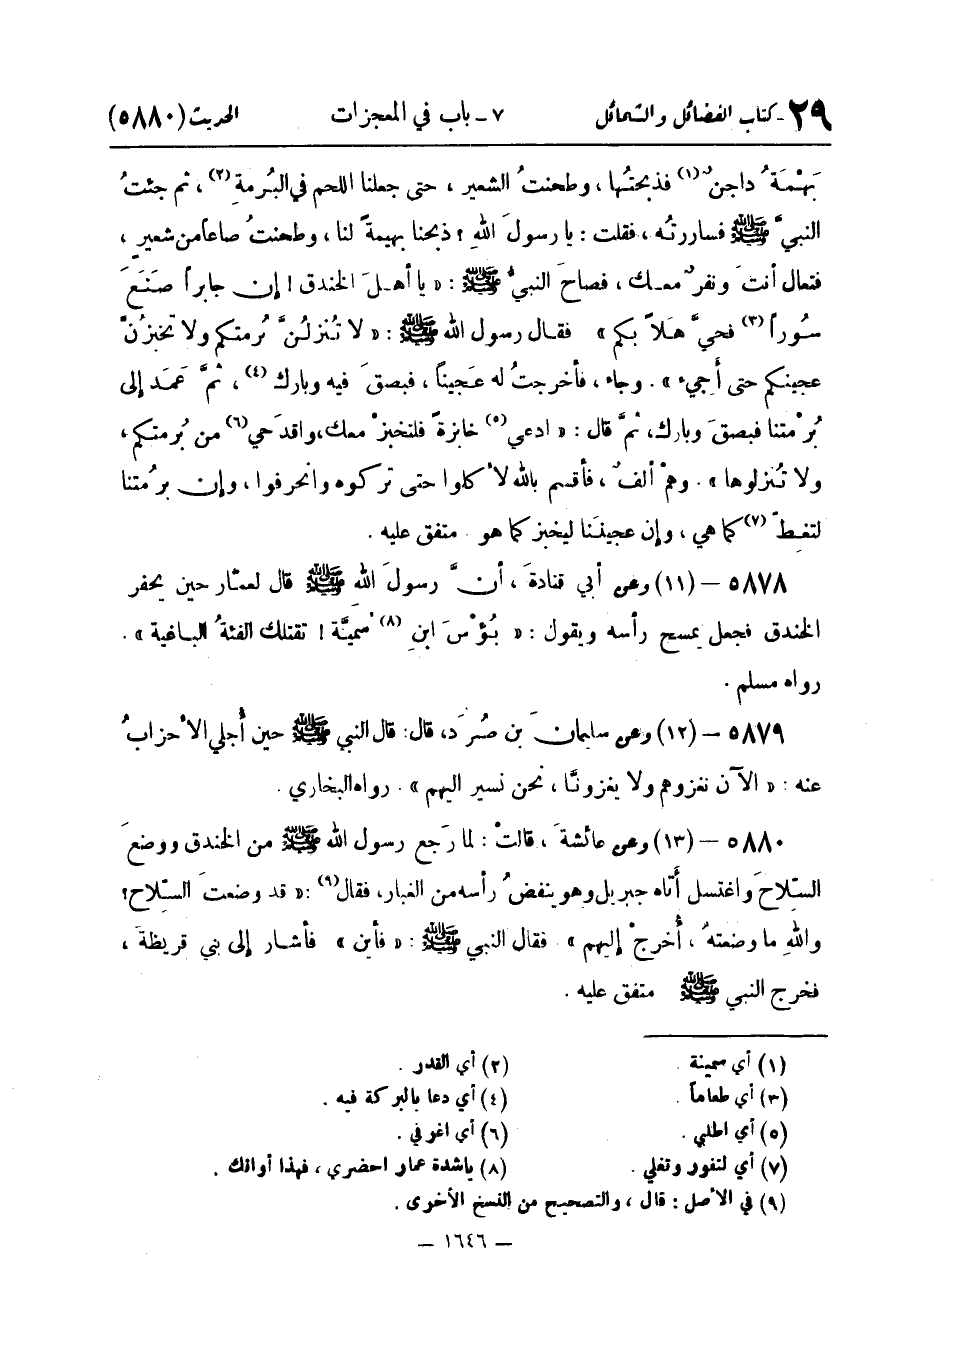 ٢٩ - كتاب الفضائل والشمائل ٧ - باب في المعجزات الحديث (٥٨٨٠)
بَهْمَةٌ داجنٌ (١) فذبحتُها ، وطحنتُ الشعير ، حتى جعلنا اللحم في البُرمةِ (٢) ، ثم جئتُ
النبيَّ ﷺ فساررتُه ، فقلت : يا رسولَ اللهِ ؟ ذبحنا بهيمةً لنا ، وطحنتُ صاعاً من شعيرٍ ،
فتعال أنتَ ونفرٌ معك ، فصاحَ النبيُّ ﷺ : « يا أهلَ الخندق ! إن جابراً صَنَعَ
سُوراً (٣) فحيَّ هَلاً بكم » فقال رسول الله ﷺ : « لا تُنزلُنَّ بُرمتكم ولا تخبزُنَّ
عجينكم حتى أجيء » . وجاء ، فأخرجتُ له عَجيناً ، فبصقَ فيه وبارك (٤) ، ثمَّ عَمَد إلى
بُرْمتنا فبصقَ وبارك، ثمَّ قال : « ادعي (٥) خابزةً فلتخبزْ معك، واقدَحي (٦) من بُرمتكم ،
ولا تُنزلوها » . وهمْ ألفٌ ، فأقسم بالله لأكلوا حتى تركوه وانحرفوا ، وإن برمُتنا
لتغِطّ (٧) كما هي ، وإن عجينَنا ليخبز كما هو . متفق عليه .
٥٨٧٨ – (١١) وعن أبي قتادةَ ، أنَّ رسولَ اللهِ ﷺ قال لعمَّار حين يحفر
الخندق فجعل يمسح رأسه ويقول : « بُؤْسَ ابنِ (٨) سُميَّة ! تقتلك الفئةُ الباغية » .
رواه مسلم .
٥٨٧٩ – (١٢) وعن سليمانَ بن صُرَد، قال: قال النبي ﷺ حين أُجلي الأحزابُ
عنه : « الآن نغزوهم ولا يغزونَّا ، نحن نسير اليهم » . رواه البخاري .
٥٨٨٠ – (١٣) وعن عائشةَ ، قالتْ : لما رَجع رسول الله ﷺ من الخندق ووضعَ
السِّلاحَ واغتسل أتاه جبريل وهو ينفضُ رأسه من الغبار، فقال (٩) : « قد وضعتَ السِّلاح؟
واللهِ ما وضعتهُ ، أُخرجْ إليهم » . فقال النبي ﷺ : « فأين » فأشار إلى بني قريظةَ ،
فخرج النبي ﷺ متفق عليه .
(١) أي سمينة . (٢) أي القدر .
(٣) أي طعاماً . (٤) أي دعا بالبركة فيه .
(٥) أي اطلبي . (٦) أي اغرفي .
(٧) أي لتفور وتغلي . (٨) ياشدة عمار احضري ، فهذا أوانك .
(٩) في الأصل : قال ، والتصحيح من النسخ الأخرى .
– ١٦٤٦ –